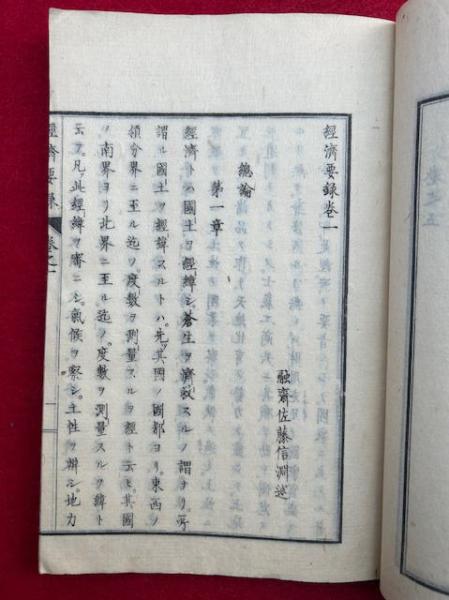 經濟要録卷一
融齋佐藤信淵述
總論
第一章
經濟トハ國土ヲ經緯シ蒼生ヲ濟救スルノ謂ヨリ所
謂ル國土ヲ經緯スルトハ先ツ其國ノ國都ヨリ東西ノ
領分界ニ至ル迄ノ度數ヲ測量スルヲ經ト云ヒ其國
ノ南界ヨリ北界ニ至ル迄ノ度數ヲ測量スルヲ緯ト
云フ凡此經緯ヲ齊ニシ氣候ヲ察シ土性ヲ辨シ地力
經濟要録 卷之一
卷之五